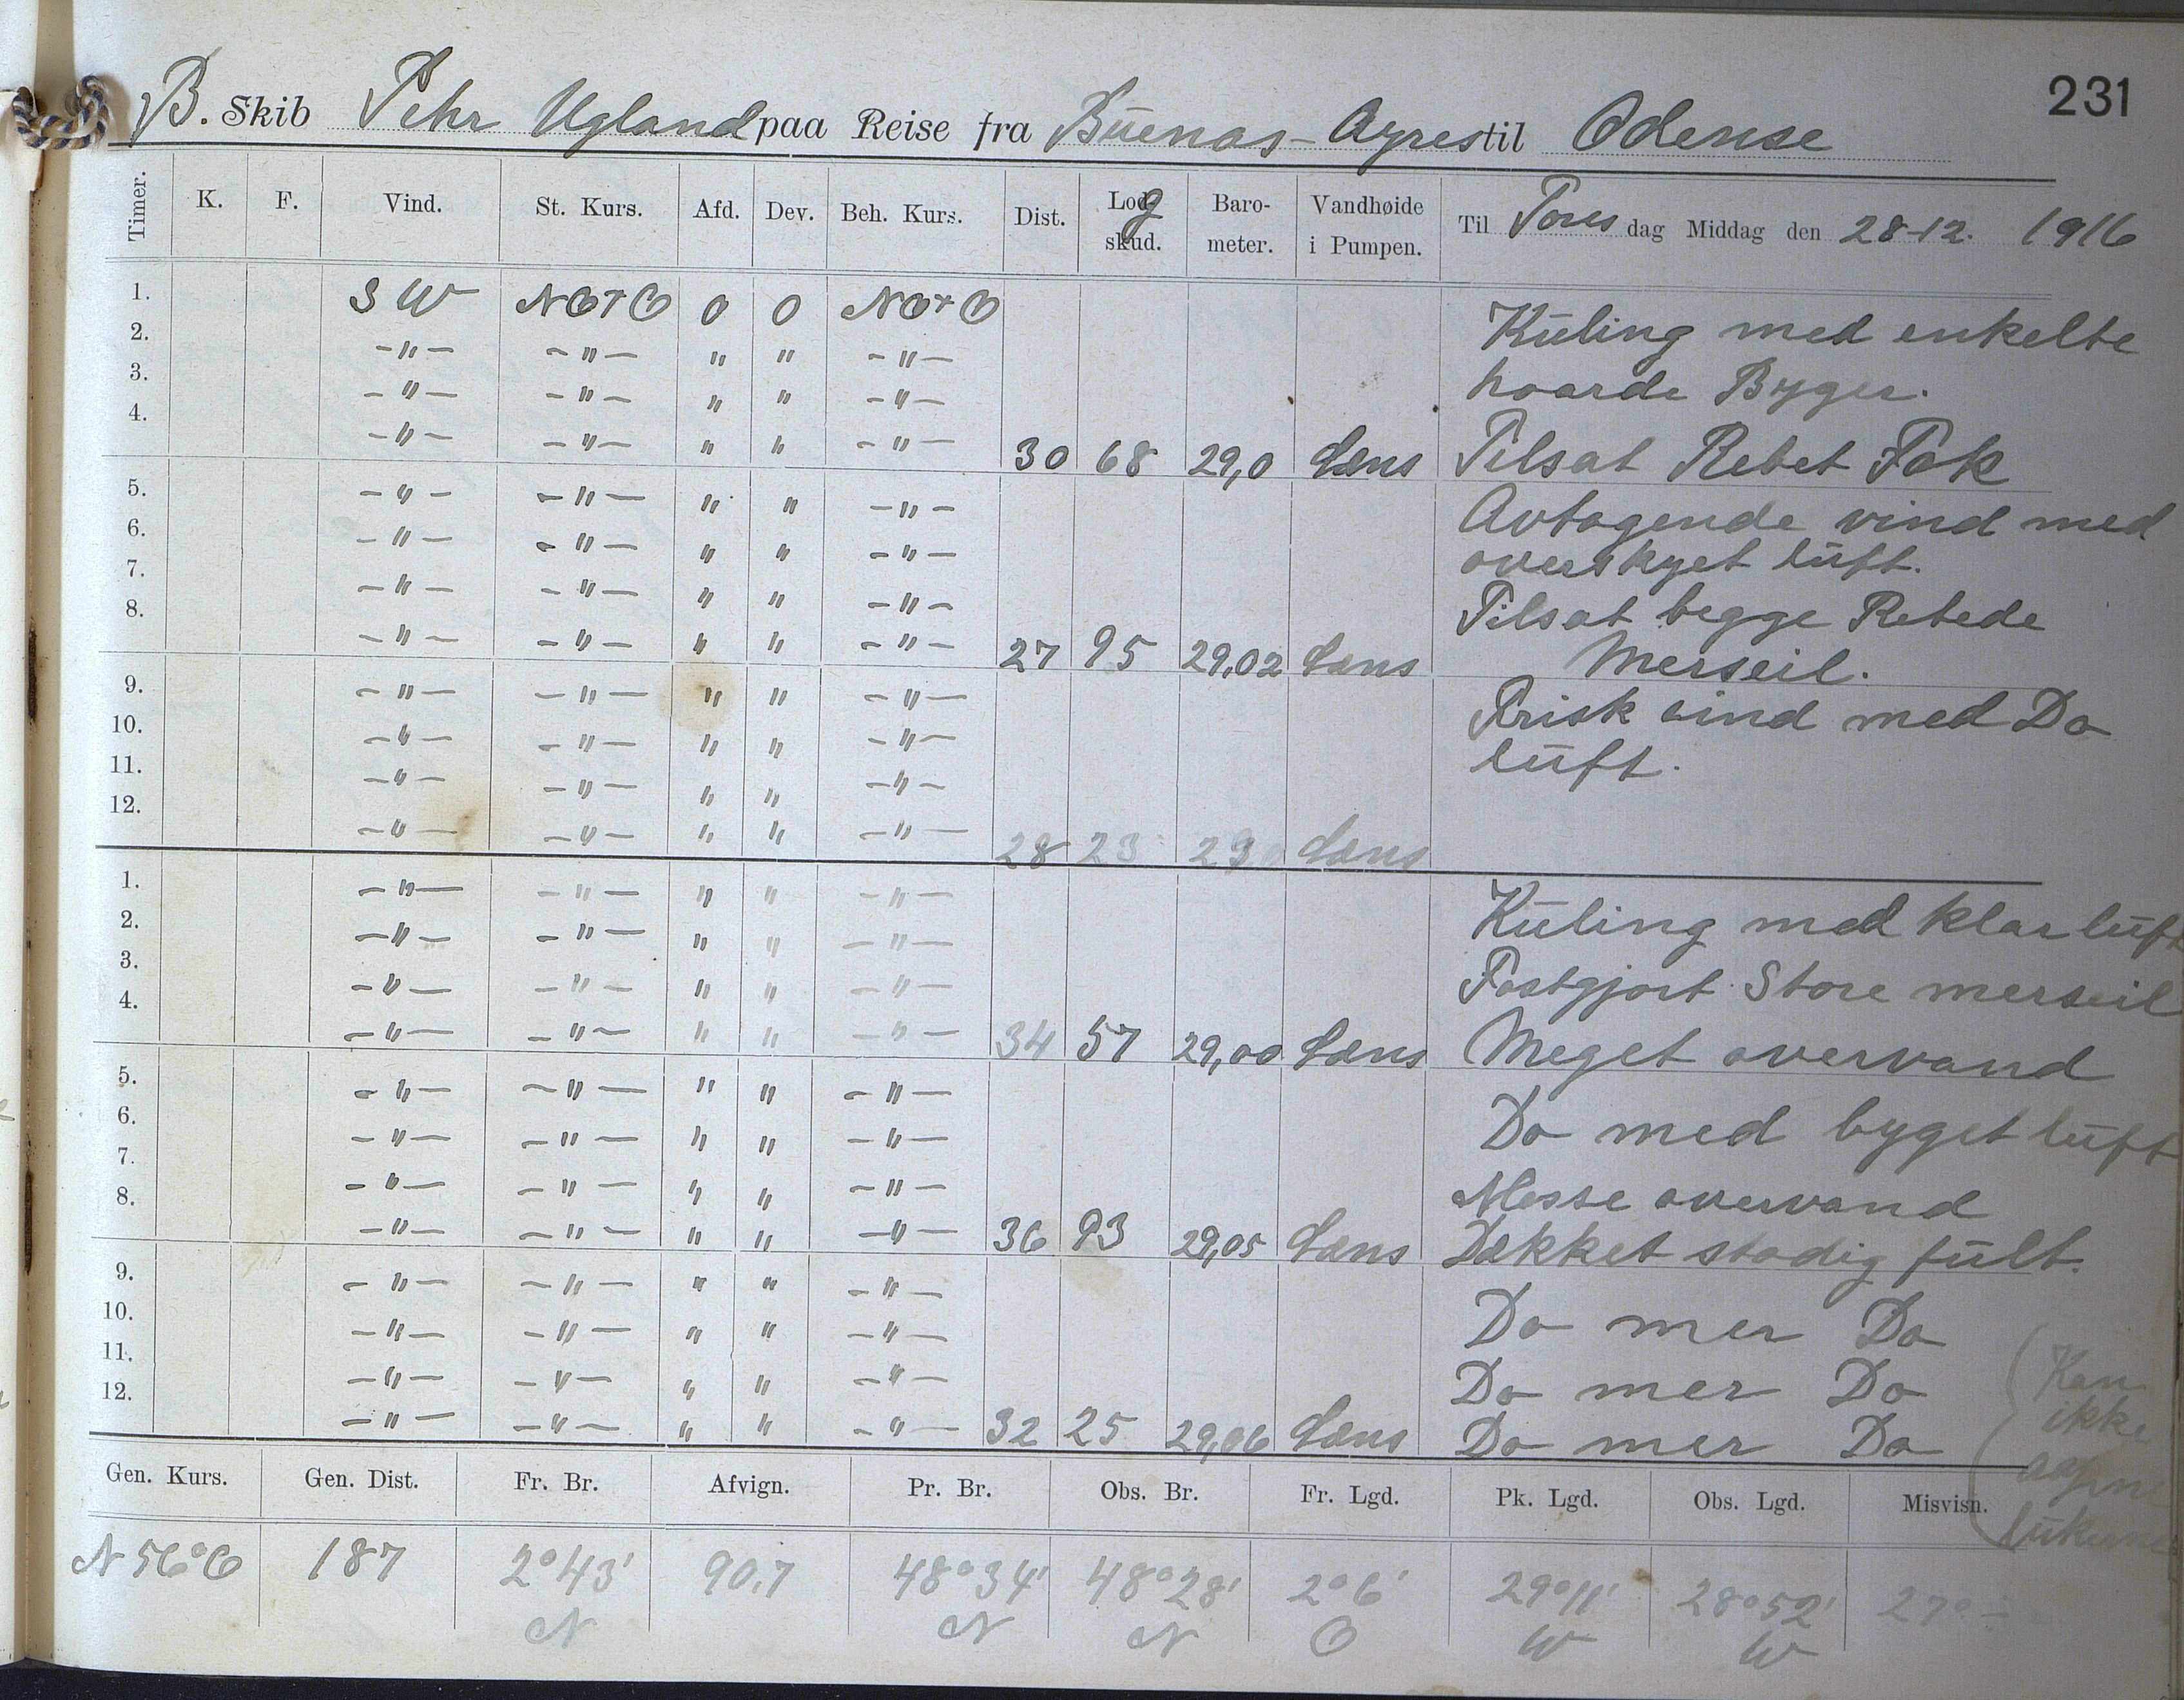 231
B. Skib Pehr Ugland paa Reise fra Buenas-Ayres til Odense
Timer. K. F. Vind. St. Kurs. Afd. Dev. Beh. Kurs. Dist. Log skud. Baro-meter. Vandhøide i Pumpen. Til Tores dag Middag den 28-12. 1916
1. SW NOtO 0 0 NOtO Küling med enkelte
2. -"- -"- " " -"-
3. -"- -"- " " -"- haarde Byger.
4. -"- -"- " " -"- 30 68 29,0 Læns Tilsat Rebet Fok
5. -"- -"- " " -"- Avtagende vind med
6. -"- -"- " " -"- overskyet lüft.
7. -"- -"- " " -"- Tilsat begge Rebede
8. -"- -"- " " -"- 27 95 29,02 Læns Merseil.
9. -"- -"- " " -"- Frisk vind med Do
10. -"- -"- " " -"- lüft.
11. -"- -"- " " -"-
12. -"- -"- " " -"- 28 23 29 Læns
1. -"- -"- " " -"- Küling med klar lüft
2. -"- -"- " " -"-
3. -"- -"- " " -"- Fastgjort Store merseil
4. -"- -"- " " -"- 34 57 29,00 Læns Meget overvand
5. -"- -"- " " -"-
6. -"- -"- " " -"- Do med byget lüft
7. -"- -"- " " -"- Masse overvand
8. -"- -"- " " -"- 36 93 29,05 Læns Dækket stadig fült.
9. -"- -"- " " -"- Do mer Do
10. -"- -"- " " -"-
11. -"- -"- " " -"- Do mer Do
12. -"- -"- " " -"- 32 25 29,06 Læns Do mer Do
Kan
ikke
lükerne
Gen. Kurs. Gen. Dist. Fr. Br. Afvign. Pr. Br. Obs. Br. Fr. Lgd. Pk. Lgd. Obs. Lgd. Misvisn.
N 56°O 187 2°43' 90.7 48°34' 48°28' 2°6' 29°11' 28°52' 27°-
N N N O W W